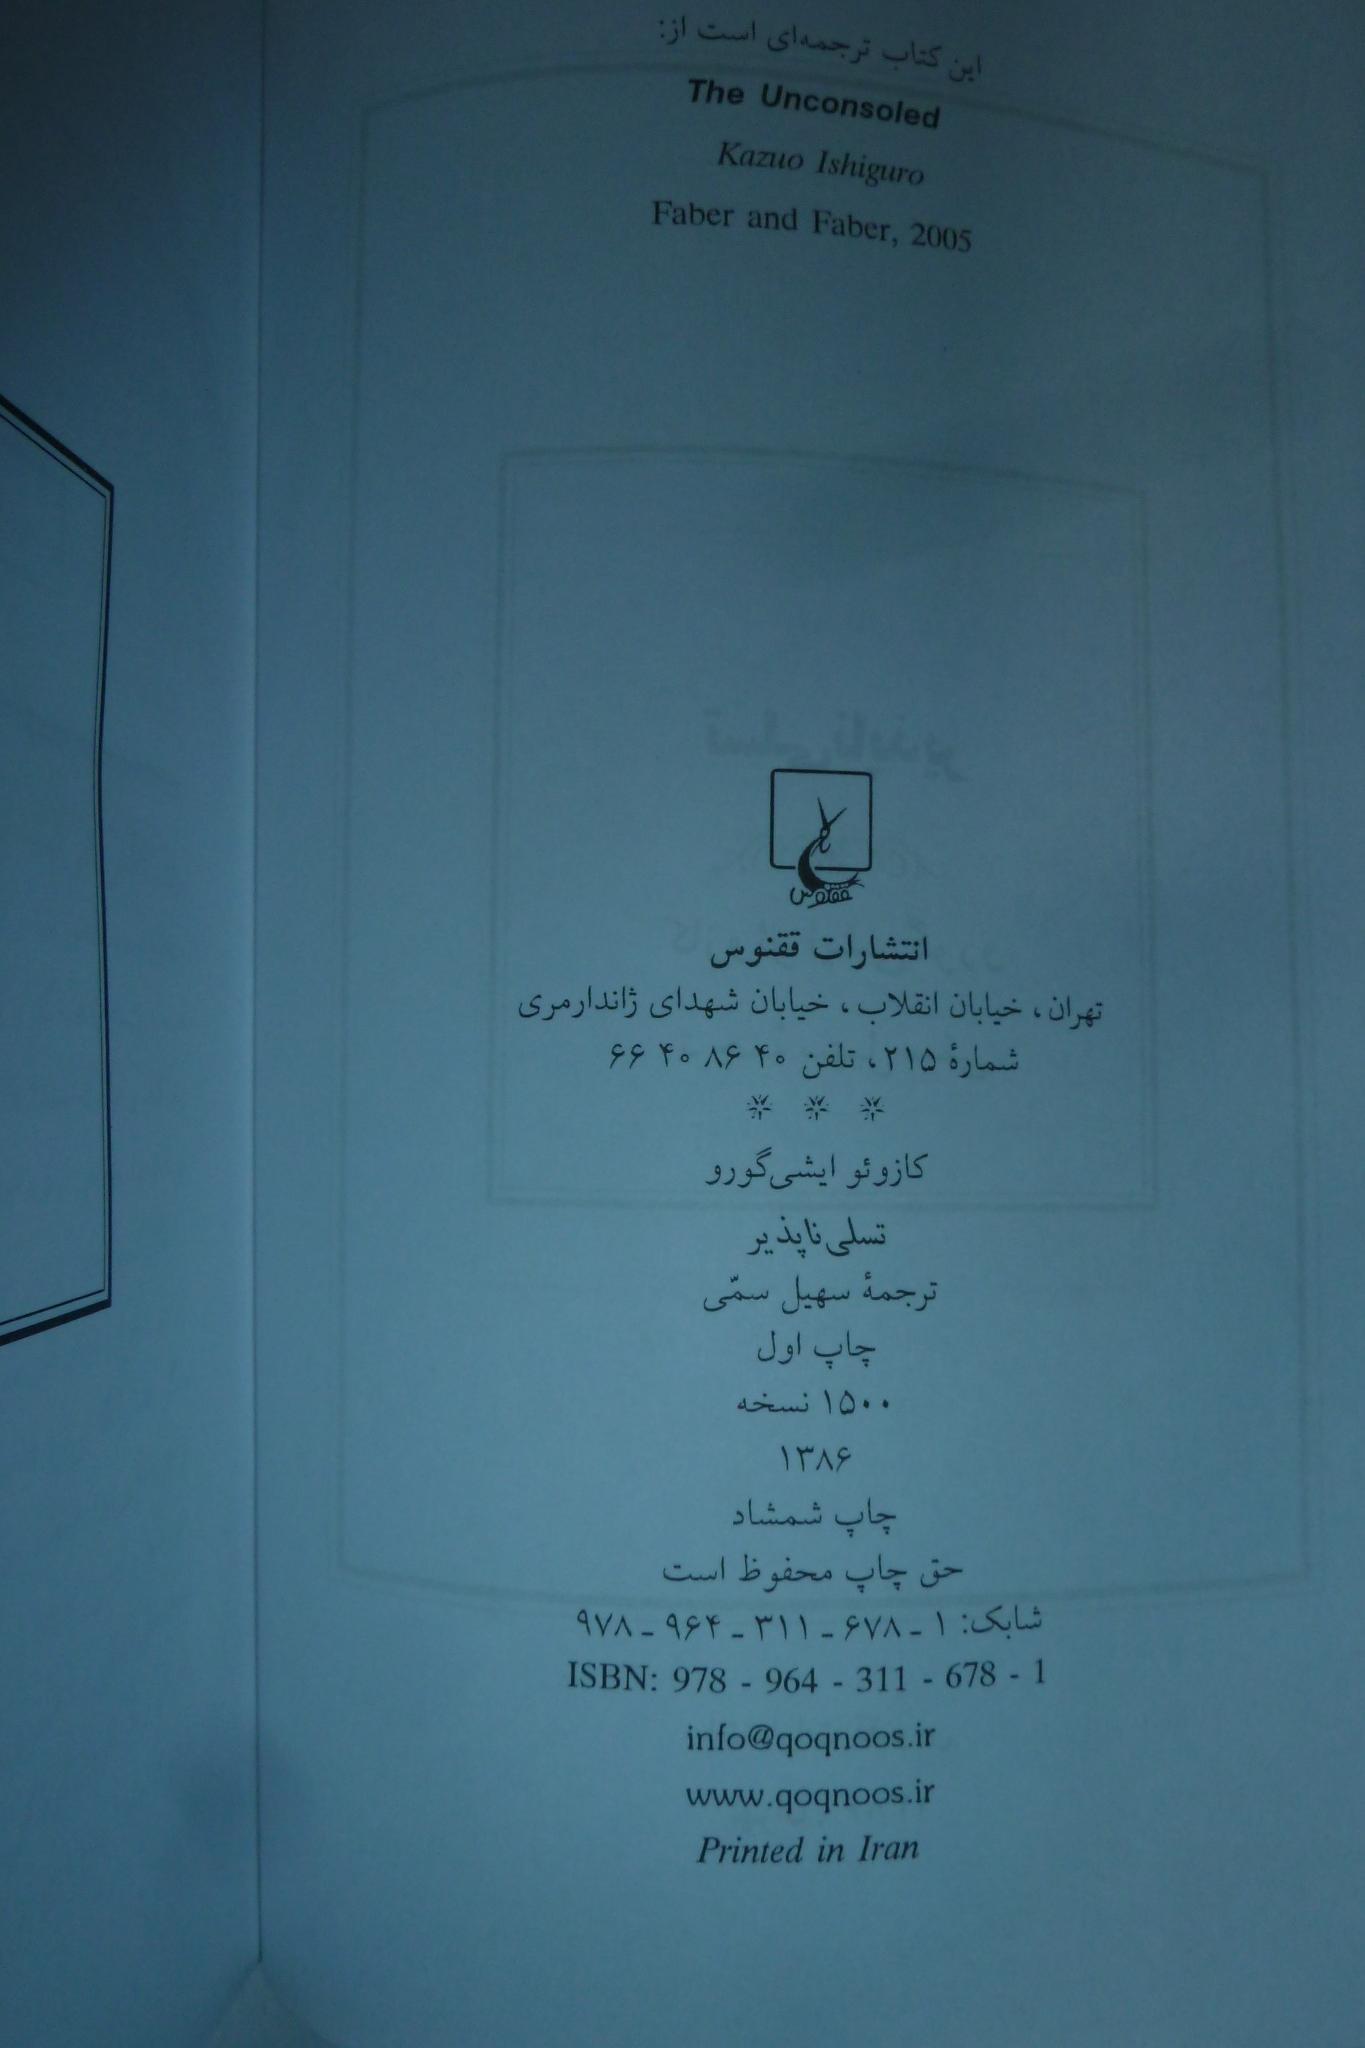 این کتاب ترجمه‌ای است از:
The Unconsoled
Kazuo Ishiguro
Faber and Faber, 2005
ققنوس
انتشارات ققنوس
تهران، خیابان انقلاب، خیابان شهدای ژاندارمری
شمارهٔ ۲۱۵، تلفن ۴۰ ۸۶ ۴۰ ۶۶
* * *
کازوئو ایشی‌گورو
تسلی‌ناپذیر
ترجمهٔ سهیل سمّی
چاپ اول
۱۵۰۰ نسخه
۱۳۸۶
چاپ شمشاد
حق چاپ محفوظ است
شابک: ۱ ـ ۶۷۸ ـ ۳۱۱ ـ ۹۶۴ ـ ۹۷۸
ISBN: 978 - 964 - 311 - 678 - 1
info@qoqnoos.ir
www.qoqnoos.ir
Printed in Iran